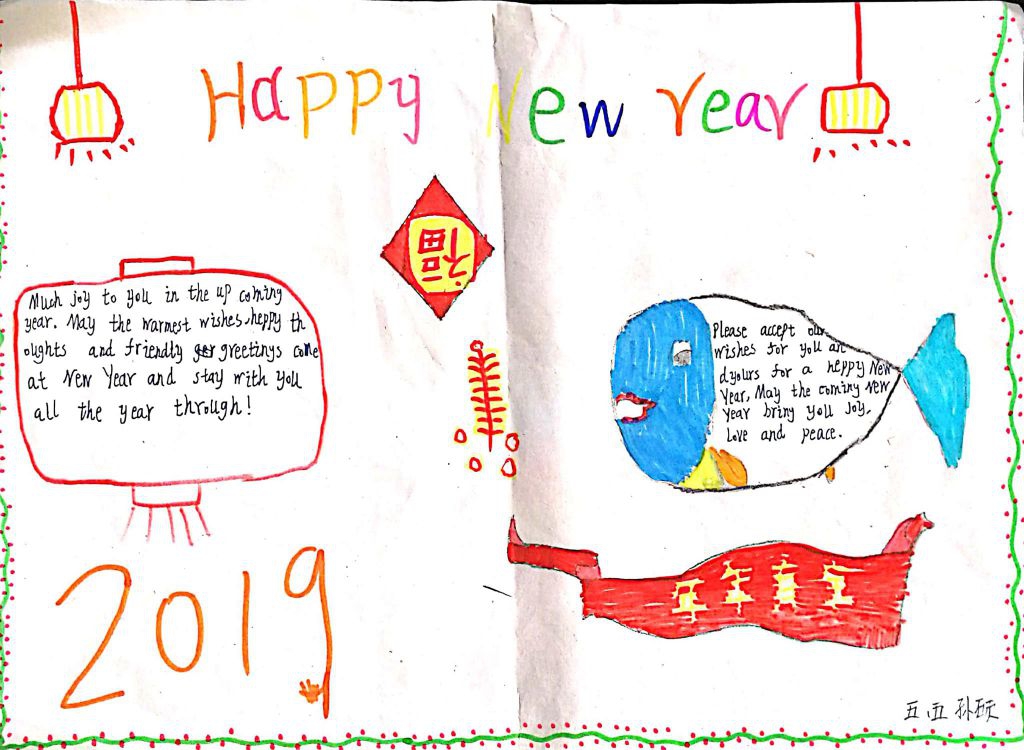 Happy New Year
福
Much joy to you in the up coming
year. May the warmest wishes, heppy th
oughts and friendly greetings come
at New Year and stay with you
all the year through!
Please accept our
wishes for you an
dyours for a heppy New
Year, May the coming New
Year bring you joy,
Love and peace.
2019
年年有余
五五 孙硕